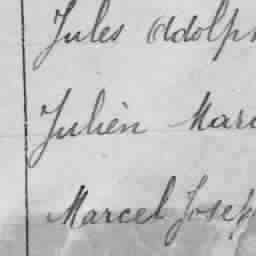 Jules Adolph
Julien Mar
Marcel Josep